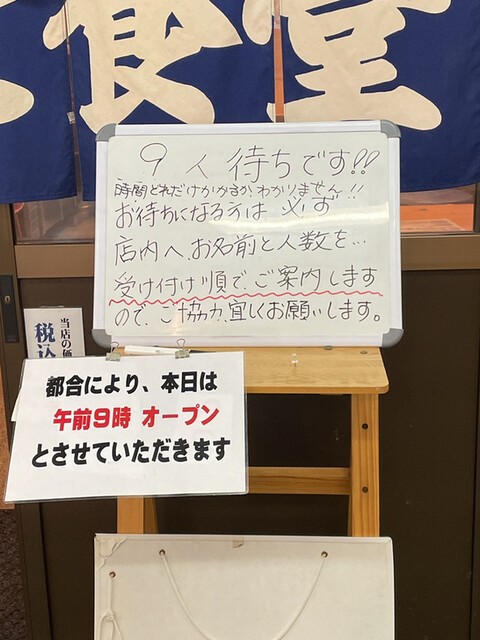 食堂
9人待ちです!!
時間どれだけかかるか、わかりません!!
お待ちになる方は必ず
店内へ、お名前と人数を…
受け付け順で、ご案内します
ので、ご協力、宜しくお願いします。
当店の価
税込
都合により、本日は
午前9時 オープン
とさせていただきます